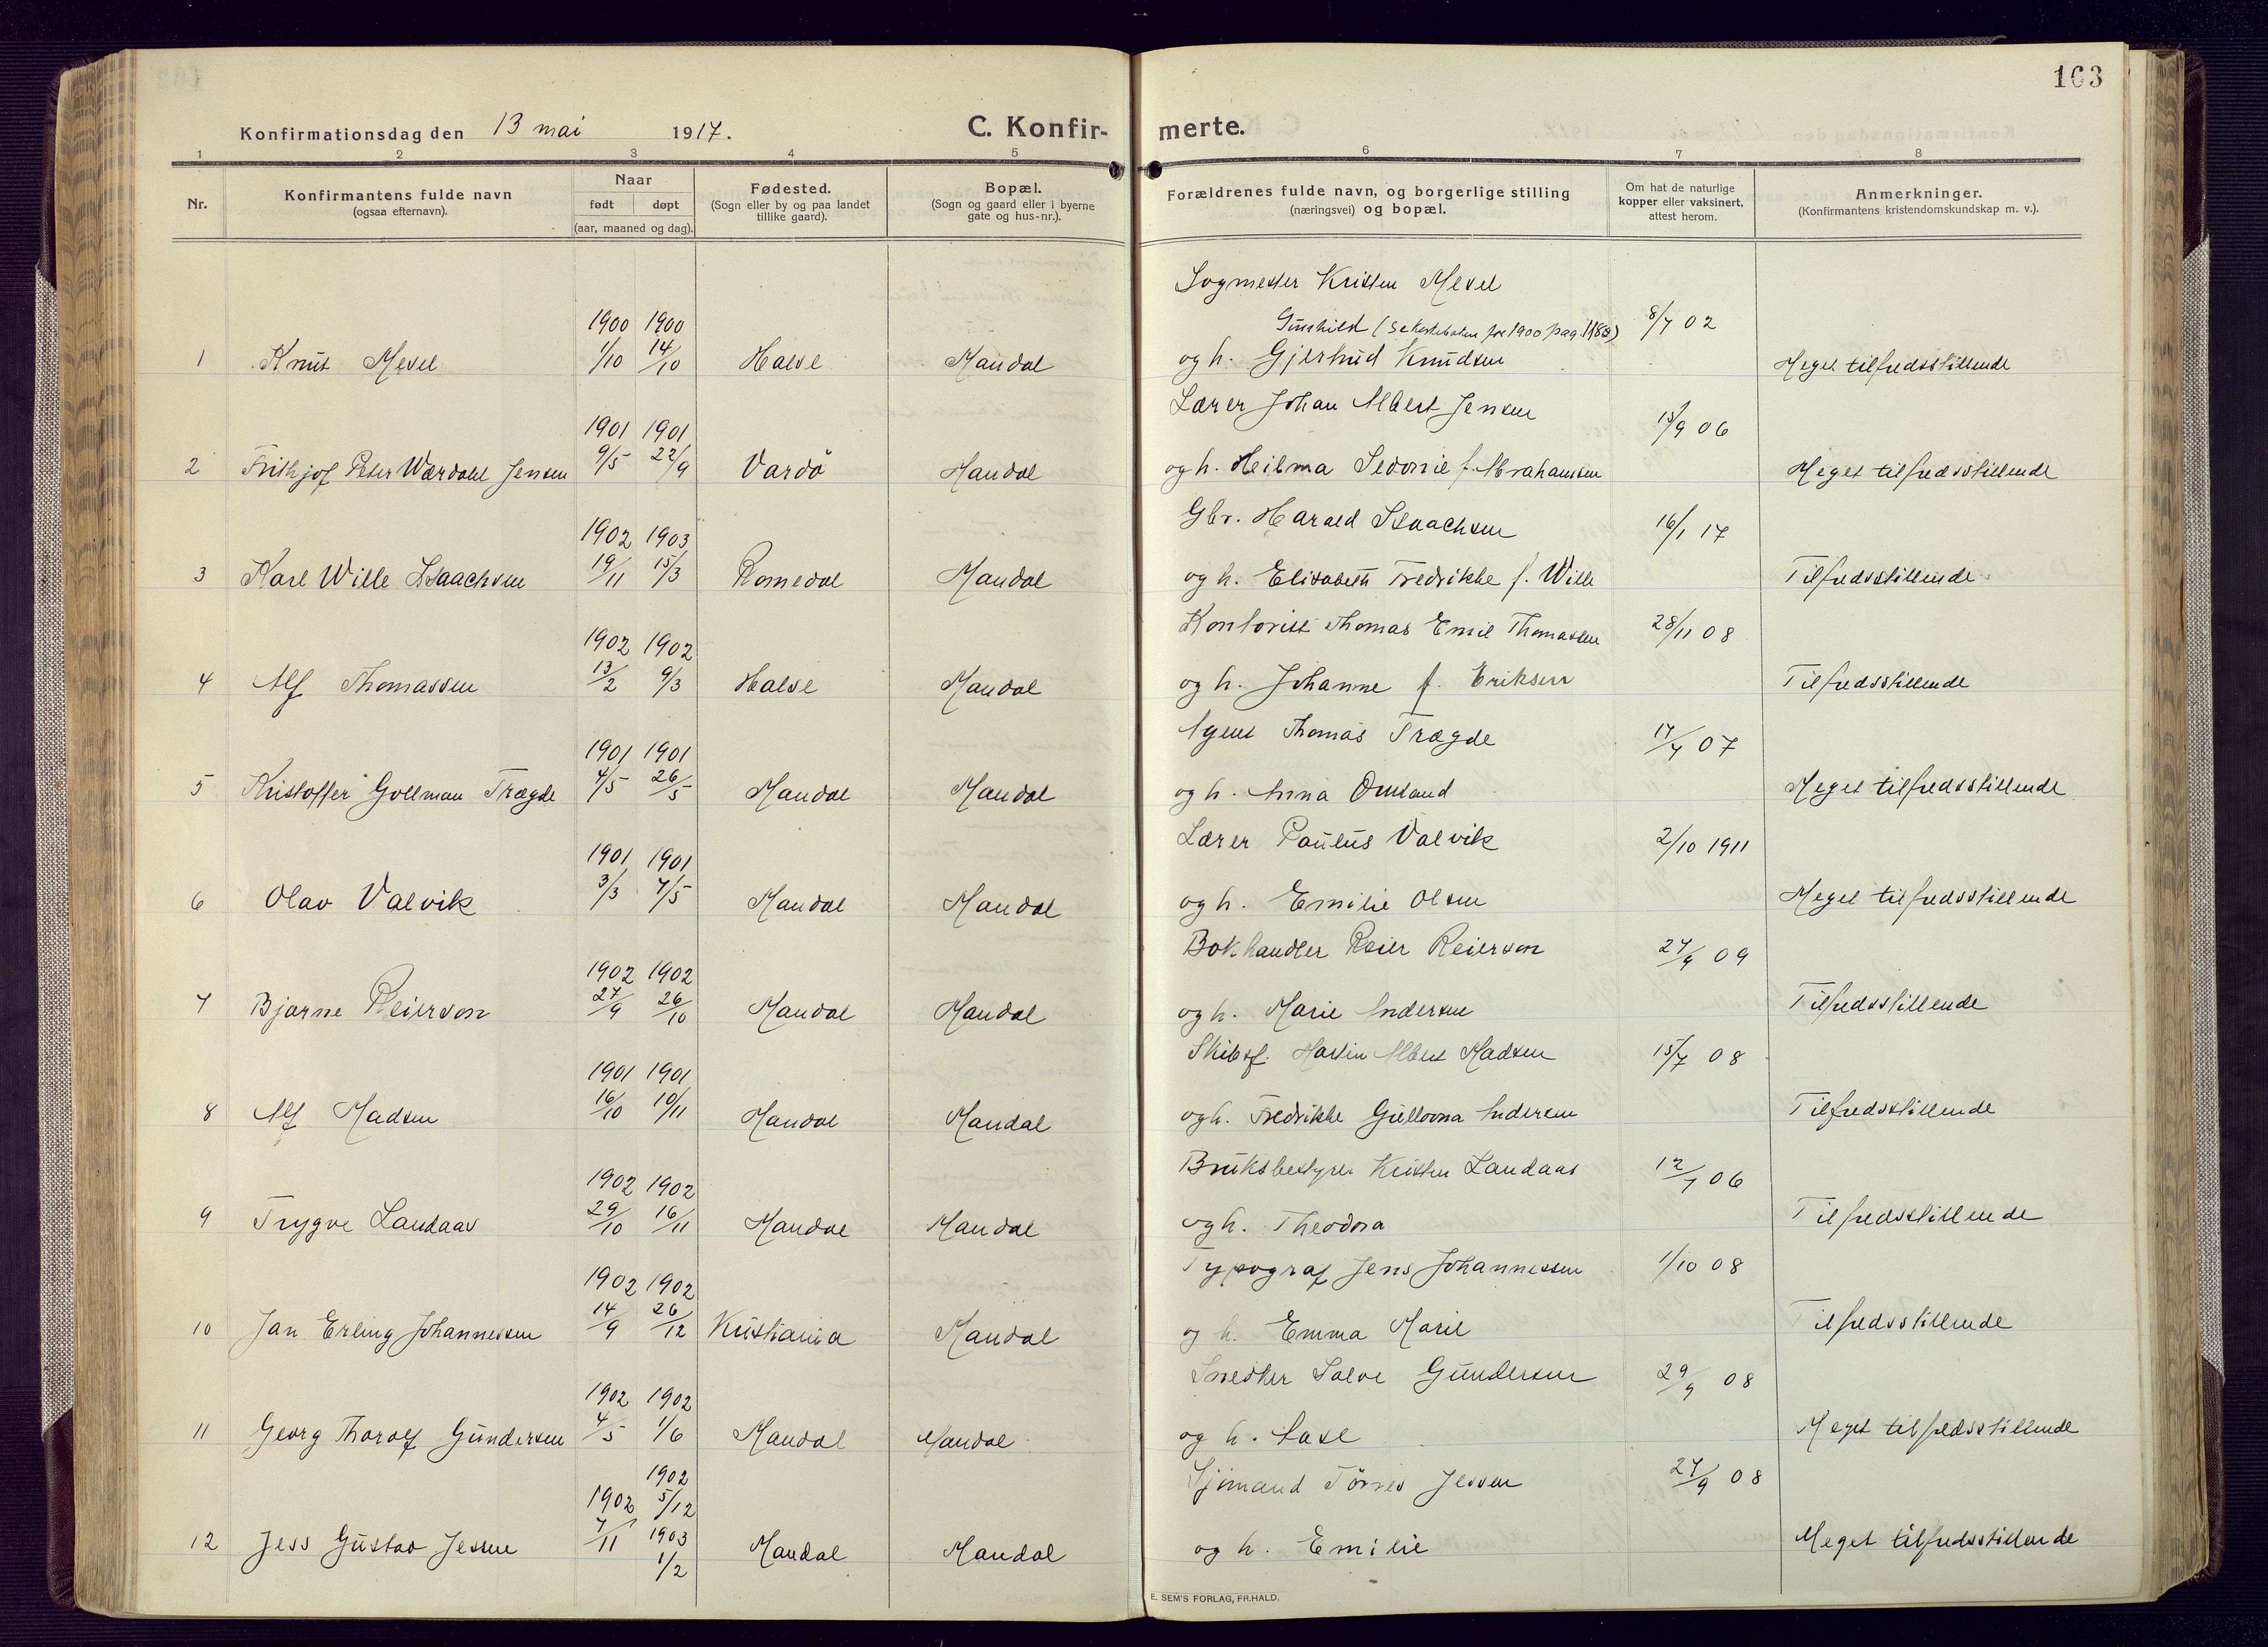 103
Konfirmationsdag den 13 mai 1917.
C. Konfir-merte.
1 2 3 4 5 6 7 8
Nr.
Konfirmantens fulde navn
(ogsaa efternavn).
Naar
født døpt
(aar, maaned og dag).
Fødested.
(Sogn eller by og paa landet
tillike gaard).
Bopæl.
(Sogn og gaard eller i byerne
gate og hus-nr.).
Forældrenes fulde navn, og borgerlige stilling
(næringsvei) og bopæl.
Om hat de naturlige
kopper eller vaksinert,
attest herom.
Anmerkninger.
(Konfirmantens kristendomskundskap m. v.).
Kristen Mesel
1900 1900
Gunhild (se kirkeboken for 1900 pag. 118) 8/7 02
1 Knut Mesel 1/10 14/10 Halse Mandal og h. Gjertrud Knudsen Meget tilfredsstillende
Lærer Johan Albert Jensen
1901 1901 15/9 06
2 Frithjof Peter Wærdahl Jensen 9/5 22/9 Vardö Mandal og h. Heilma Sedonie f. Abrahamsen Meget tilfredsstillende
Gbr. Harald Isaachsen
1902 1903 16/1 17
3 Karl Wille Isaachsen 19/11 15/3 Romedal Mandal og h. Elisabeth Fredrikke f. Wille Tilfredsstillende
Kontorist Thomas Emil Thomassen
1902 1902 28/11 08
4 Alf Thomassen 13/2 9/3 Halse Mandal og h. Johanne f. Eriksen Tilfredsstillende
Agent Thomas Trægde
1901 1901 17/7 07
5 Kristoffer Gollman Trægde 4/5 26/5 Mandal Mandal og h. Anna Omland Meget tilfredsstillende
Lærer Paulus Valvik
1901 1901 2/10 1911
6 Olav Valvik 3/3 7/5 Mandal Mandal og h. Emilie Olsen Meget tilfredsstillende
Bokhandler Reier Reierson
1902 1902 27/9 09
7 Bjarne Reierson 27/9 26/10 Mandal Mandal og h. Marie Andersen Tilfredsstillende
Skibsf. Martin Albert Madsen
1901 1901 15/7 08
8 Alf Madsen 16/10 10/11 Mandal Mandal og h. Fredrikke Andersen Tilfredsstillende
Bruksbestyrer Kristen Landaas
1902 1902 12/7 06
9 Trygve Landaas 29/10 16/11 Mandal Mandal og h. Theodora Tilfredsstillende
Typograf Jens Johannessen
1902 1902 1/10 08
10 Jan Erling Johannessen 14/9 26/12 Kristiania Mandal og h. Emma Marie Tilfredsstillende
Snedker Salve Gundersen
1902 1902 29/9 08
11 Georg Thorolf Gundersen 4/5 1/6 Mandal Mandal og h. Aase Meget tilfredsstillende
Sjömand Törres Jessen
1902 27/9 08
1902 5/12
12 Jess Gustav Jessen 7/11 1903 1/2 Mandal Mandal og h. Emilie Meget tilfredsstillende
E. SEM'S FORLAG, FR.HALD.